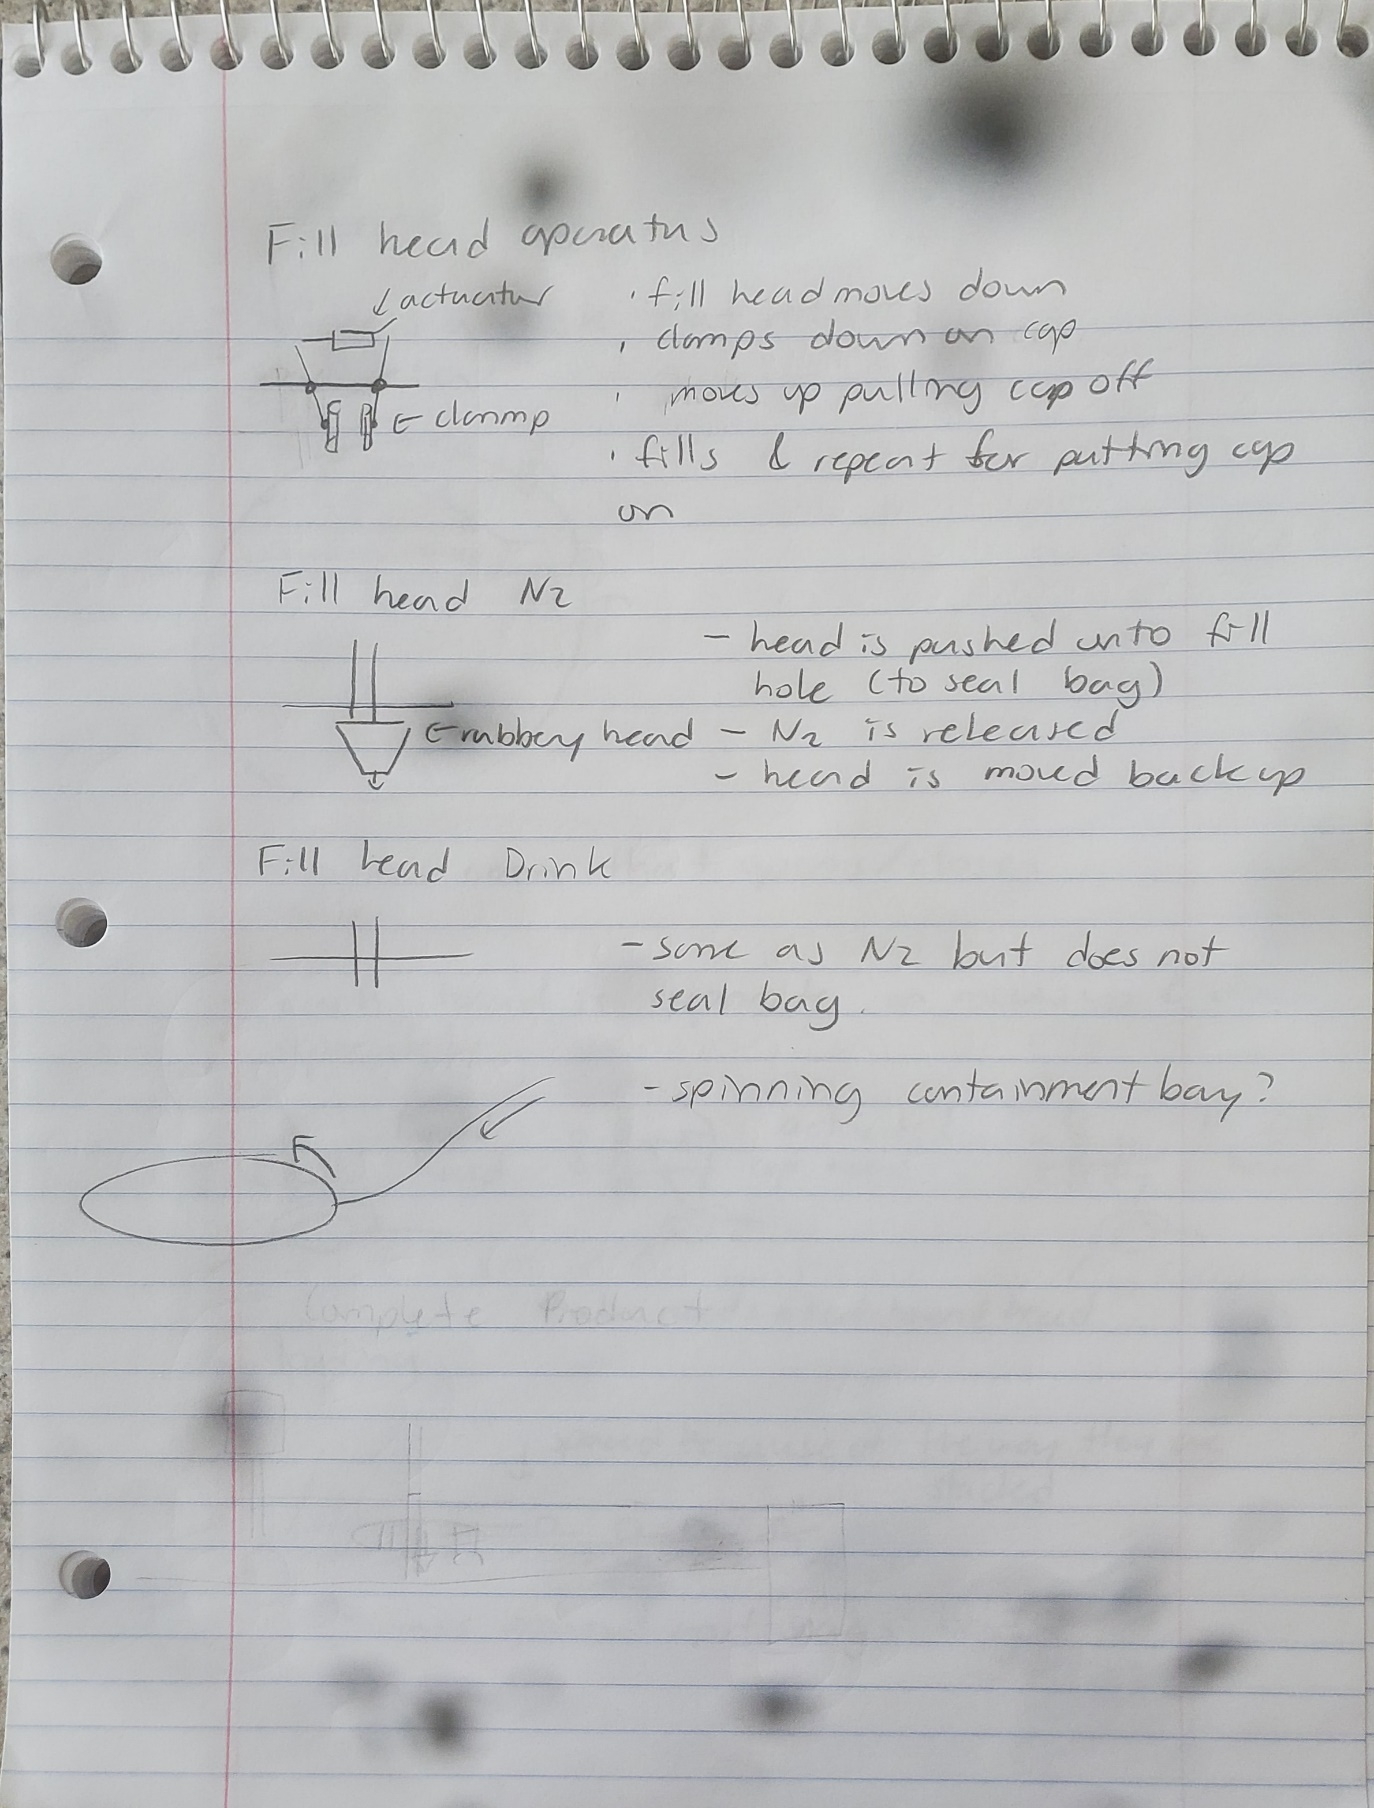 Fill head aperatus
actuator
· fill head moves down
· clamps down on cap
· moves up pulling cap off
← clammp
· fills & repeat for putting cap
on
Fill head N2
- head is pushed unto fill
hole (to seal bag)
← rubbery head - N2 is released
- head is moved back up
Fill head Drink
- same as N2 but does not
seal bag.
- spinning containment bay?
Complete Product